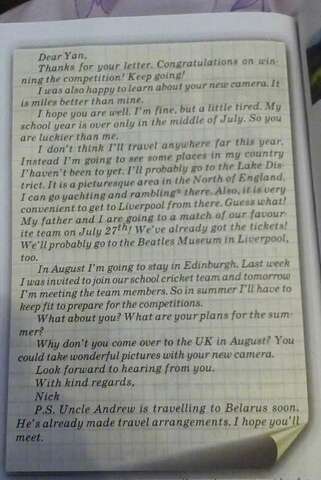 Dear Yan,
Thanks for your letter. Congratulations on win-
ning the competition! Keep going!
I was also happy to learn about your new camera. It
is miles better than mine.
I hope you are well. I'm fine, but a little tired. My
school year is over only in the middle of July. So you
are luckier than me.
I don't think I'll travel anywhere far this year.
Instead I'm going to see some places in my country
I haven't been to yet. I'll probably go to the Lake Dis-
trict. It is a picturesque area in the North of England.
I can go yachting and rambling* there. Also, it is very
convenient to get to Liverpool from there. Guess what!
My father and I are going to a match of our favour-
ite team on July 27th! We've already got the tickets!
We'll probably go to the Beatles Museum in Liverpool,
too.
In August I'm going to stay in Edinburgh. Last week
I was invited to join our school cricket team and tomorrow
I'm meeting the team members. So in summer I'll have to
keep fit to prepare for the competitions.
What about you? What are your plans for the sum-
mer?
Why don't you come over to the UK in August? You
could take wonderful pictures with your new camera.
Look forward to hearing from you.
With kind regards,
Nick
P.S. Uncle Andrew is travelling to Belarus soon.
He's already made travel arrangements. I hope you'll
meet.